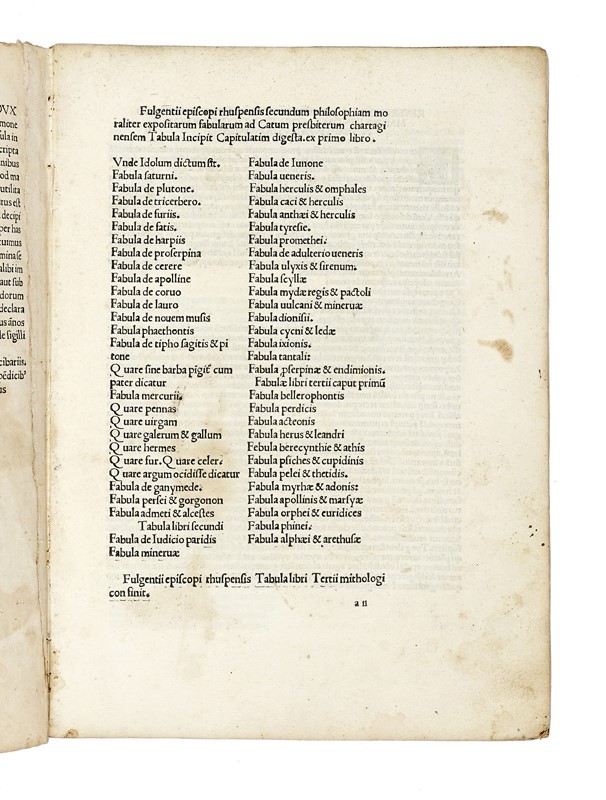 OVX
mone
ula in
cripta
nibus
od ma
utilita
rus est
decipi
per has
tuimus
mina se
alibi im
aut sub
dorum
declara
us ãnos
le sigilli
cibariis.
pẽdicib'
us
Fulgentii episcopi rhuspensis secundum philosophiam mo
raliter expositarum fabularum ad Catum presbiterum chartagi
nensem Tabula Incipit Capitulatim digesta. ex primo libro.
Vnde Idolum dictum st.
Fabula saturni.
Fabula de plutone.
Fabula de tricerbero.
Fabula de furiis.
Fabula de fatis.
Fabula de harpiis
Fabula de proserpina
Fabula de cerere
Fabula de apolline
Fabula de coruo
Fabula de lauro
Fabula de nouem musis
Fabula phaethontis
Fabula de tipho sagitis & pi
tone
Quare sine barba pīgit̃ cum
pater dicatur
Fabula mercurii.
Quare pennas
Quare uirgam
Quare galerum & gallum
Quare hermes
Quare fur. Quare celer.
Quare argum ocidisse dicatur
Fabula de ganymede.
Fabula persei & gorgonon
Fabula admeti & alcestes
Tabula libri secundi
Fabula de Iudicio paridis
Fabula mineruæ
Fabula de Iunone
Fabula ueneris.
Fabula herculis & omphales
Fabula caci & herculis
Fabula anthæi & herculis
Fabula tyresie.
Fabula promethei.
Fabula de adulterio ueneris
Fabula ulyxis & sirenum.
Fabula scyllæ
Fabula mydæ regis & pactoli
Fabula uulcani & mineruæ
Fabula dionisii.
Fabula cycni & ledæ
Fabula ixionis.
Fabula tantali:
Fabula ꝓserpinæ & endimionis.
Fabulæ libri tertii caput primū
Fabula bellerophontis
Fabula perdicis
Fabula acteonis
Fabula herus & leandri
Febula berecynthie & athis
Fabula psiches & cupidinis
Fabula pelei & thetidis.
Fabula myrhæ & adonis:
Fabula apollinis & marsyæ
Fabula orphei & euridices
Fabula phinei.
Fabula alphæi & arethusæ
Fulgentii episcopi rhuspensis Tabula libri Tertii mithologi
con finit.
a ii